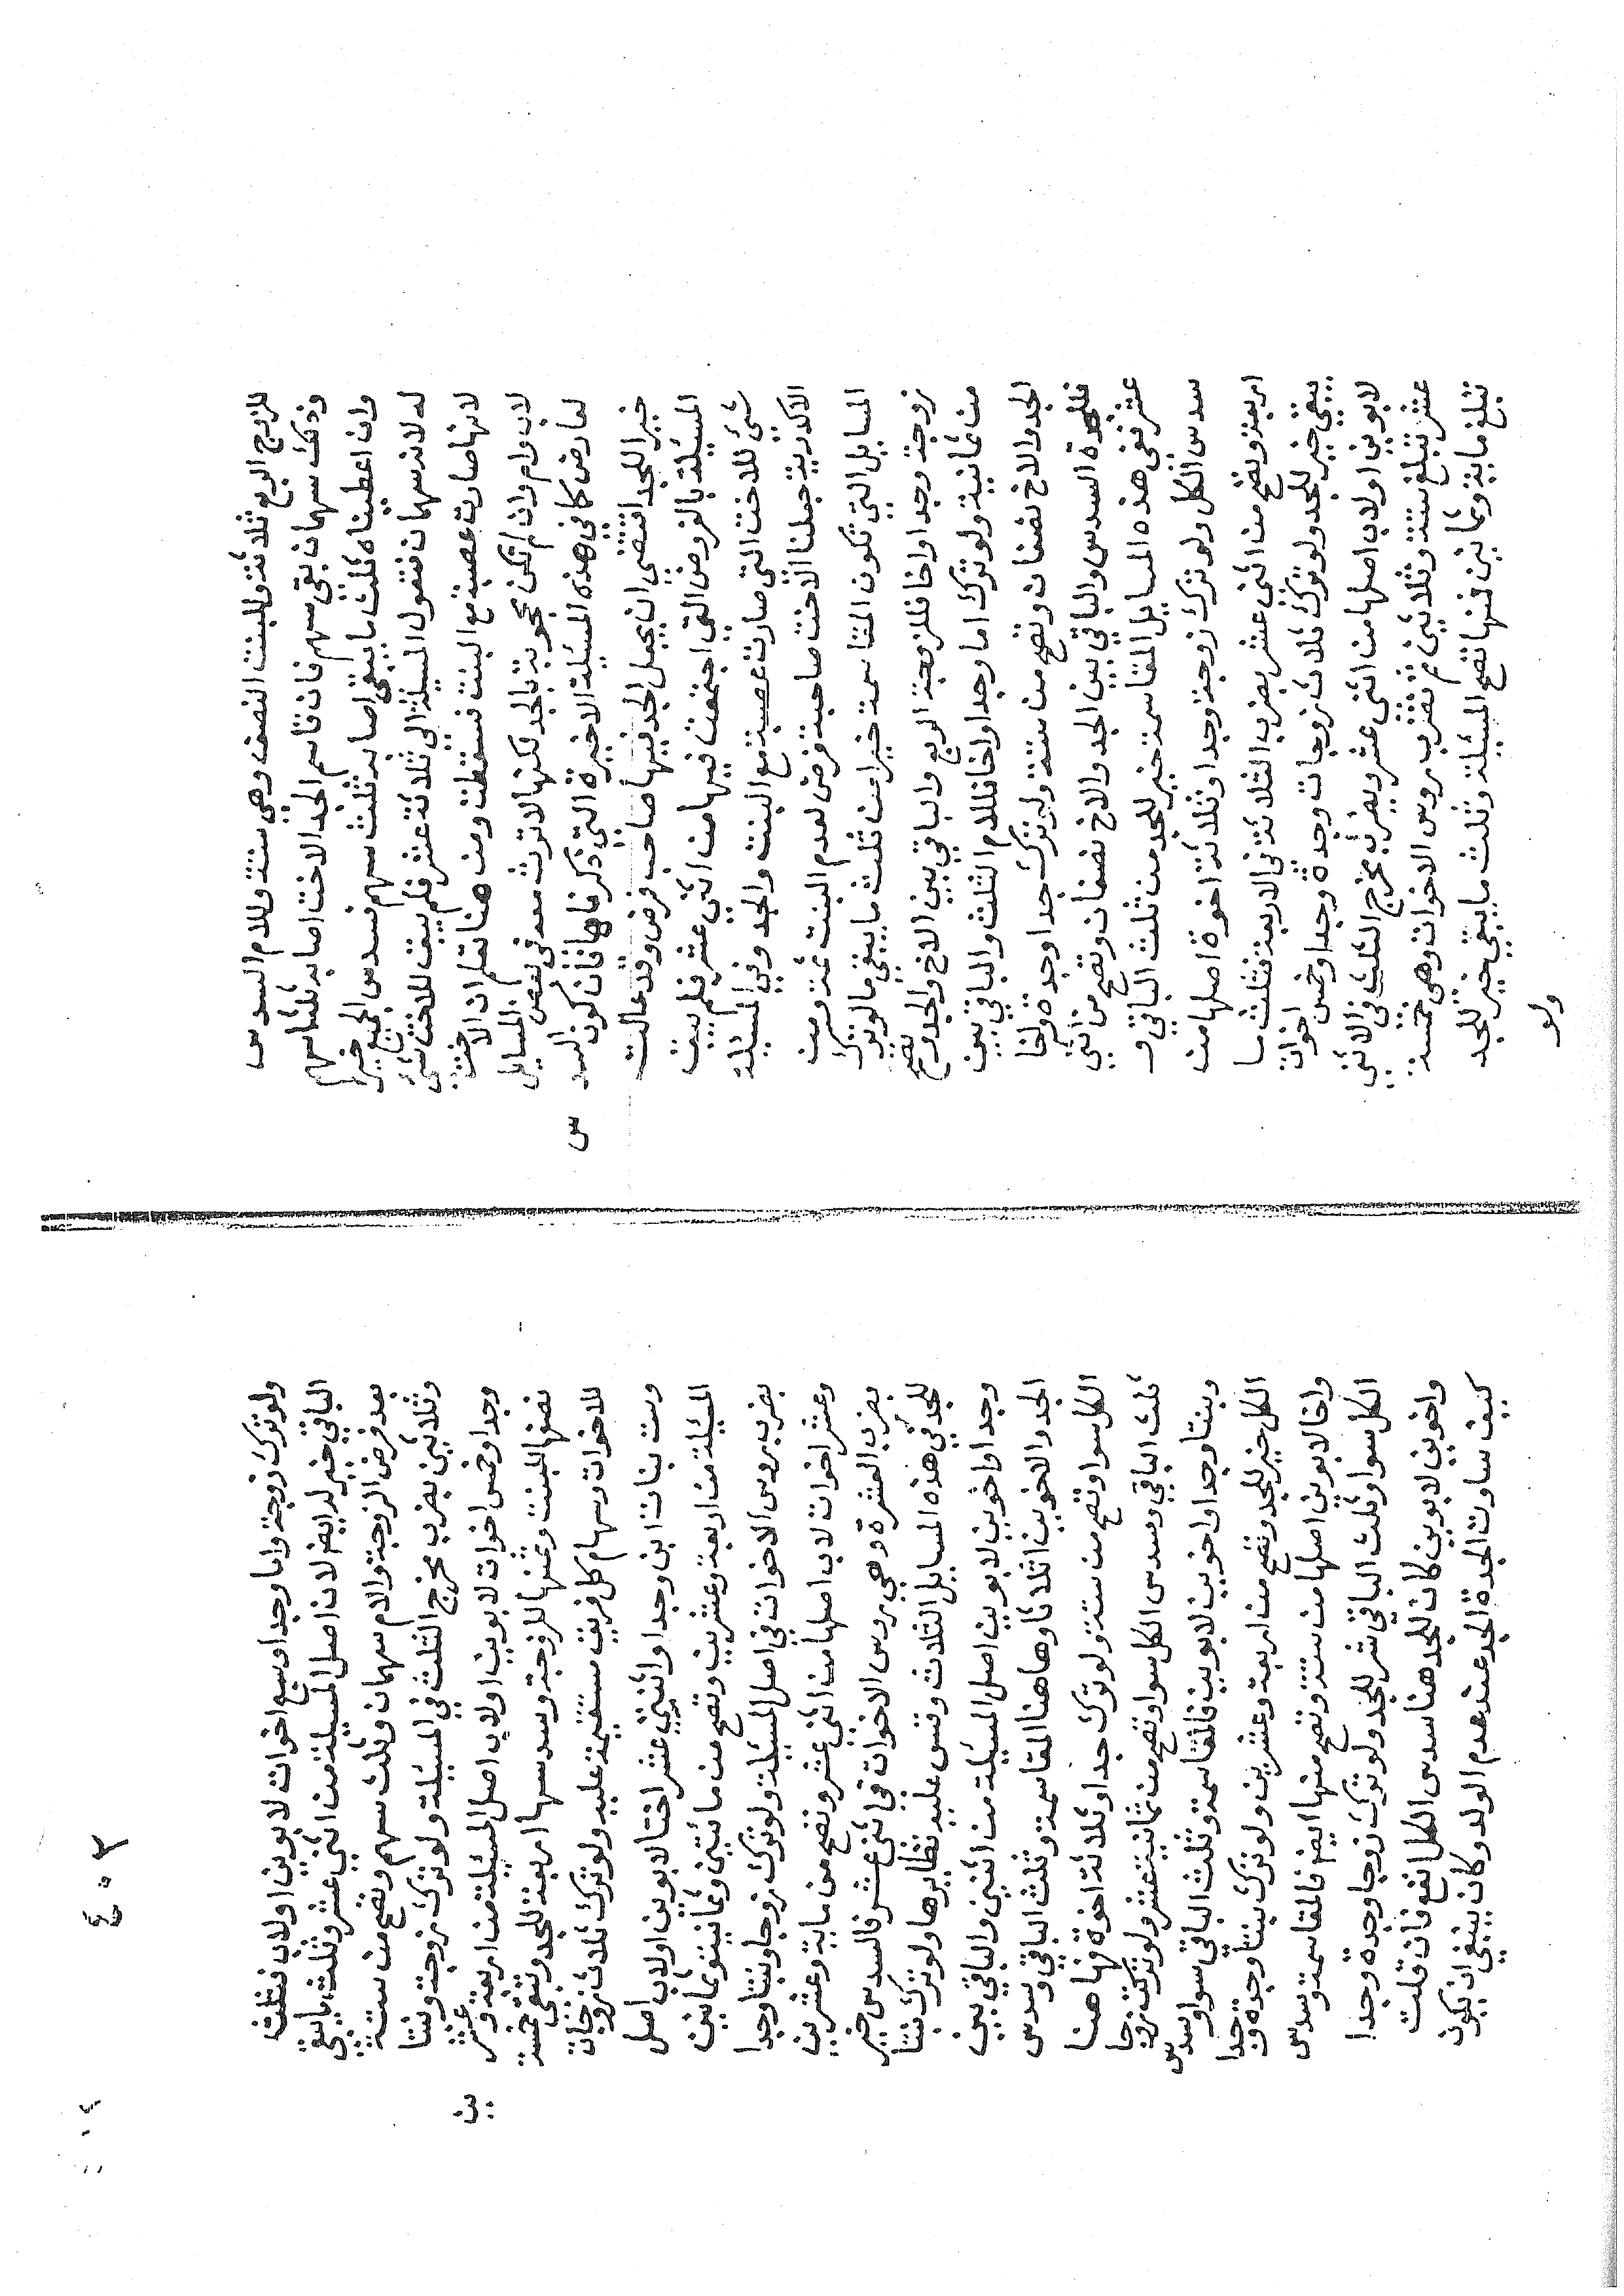 للزوج الربع ثلاثة وللبنت النصف وهي ستة وللام السدس
وذلك سهمان بقي سهم فان قاسم الجد الاخت اصابه ثلثا سهم
وان اعطيناه ثلث ما يبقى اصابه ثلث سهم فسدس الجميع خيرا
له لانه سهمان فتعول المسيلة الى ثلاثة عشر فلم يبق للاخت شئ
لانها صارت عصبة مع البنت فسقطت ومن هنا تعلم ان الاخت
لاب وام وان لم تكن محجوبة بالجد لكنها لا ترث معه في بعض المسايل
لعارض كما في هذه المسيلة الاخيرة التي ذكرناها فان كون السدس
خير اللجد اقتضى ان يجعل الجد فيها صاحب فرض وقد عالت
المسيلة بالفروض التي اجتمعت فيها من اثنى عشر فلم يبق
شئ للاخت التي صارت عصبة مع البنت والجد وفي المسيلة
الاكدرية جعلنا الاخت صاحبة فرض لعدم البنت ثمه ومن
المسايل التي تكون المقاسمة خيرا من ثلث ما يبقى ما لو ترك
زوجة وجدا واخا فللزوجة الربع والباقي بين الاخ والجد وتصح
من ثمانية ولو ترك اما وجدا واخا فللام الثلث والباقي بين
الجد والاخ نصفان وتصح من ستة ولو ترك جدا وجدة واخا
فللجدة السدس والباقي بين الجد والاخ نصفان وتصح من اثنى
عشر ففي هذه المسايل المقاسمة خير للجد من ثلث الباقي و
سدس الكل ولو ترك زوجة وجدا وثلاثة اخوة اصلها من
اربعة وتصح من اثنى عشر بضرب الثلاثة في الاربعة فثلث ما
يبقي خير للجد ولو ترك ثلاث زوجات وجدة وجدا وخمس اخوات
لابوين او لاب اصلها من اثنى عشر ويضرب مخرج الثلث في الاثنى
عشر تبلغ ستة وثلاثين ثم تضرب روس الاخوات وهى خمسة
تبلغ ماية وثمانين فمنها تصح المسيلة وثلث ما يبقي خير للجد
ولو
ولو ترك زوجة واما وجدا وسبع اخوات لابوين او لاب فثلث
الباقي خير له ايضا لان اصل المسيلة من اثنى عشر وثلث ما يبقى
بعد فرض الزوجة والام سهمان وثلث سهم وتصح من ستة
وثلاثين بضرب مخرج الثلث في المسيلة ولو ترك زوجة وبنتا
وجدا وخمس اخوات لابوين او لاب اصل المسيلة من اربعة وعشرين
نصفها للبنت وثمنها للزوجة وسدسها اربعة للجد وتبقى خمسة
للاخوات وسهام كل فريق مستقيمة عليه ولو ترك ثلاث زوجات
وست بنات ابن وجدا واثنتى عشر اختا لابوين او لاب اصل
المسيلة من اربعة وعشرين وتصح من مائتى وثمانية وثمانين
بضرب روس الاخوات في اصل المسيلة ولو ترك زوجا وبنتا وجدا
وعشر اخوات لاب اصلها من اثنى عشر وتصح من ماية وعشرين
بضرب العشرة وهي روس الاخوات في اثنى عشر فالسدس خير
للجد في هذه المسايل الثلاث وقس عليه نظايرها ولو ترك بنتا
وجدا واخوين لابوين اصل المسيلة من اثنين والباقي بين
الجد والاخوين اثلاثا وهاهنا المقاسمة وثلث الباقي وسدس
الكل سوا وتصح من ستة ولو ترك جدا وثلاثة اخوة فهاهنا
ثلث الباقي وسدس الكل سوا وتصح من ثمانية عشر ولو تركت زوجا
وبنتا وجدا واخوين لابوين فالمقاسمة وثلث الباقي سوا وسدس
الكل خير للجد وتصح من اربعة وعشرين ولو ترك بنتا وجدة وجدا
واخا لابوين اصلها من ستة وتصح منها ايضا فالمقاسمة وسدس
الكل سوا وثلث الباقي شر للجد ولو ترك زوجا وجدة وجدا
واخوين لابوين كان للجد هنا سدس الكل انفع فان قلت
كيف ساوت الجدة الجد عند عدم الولد وكان ينبغي ان يكون
٤٠٢